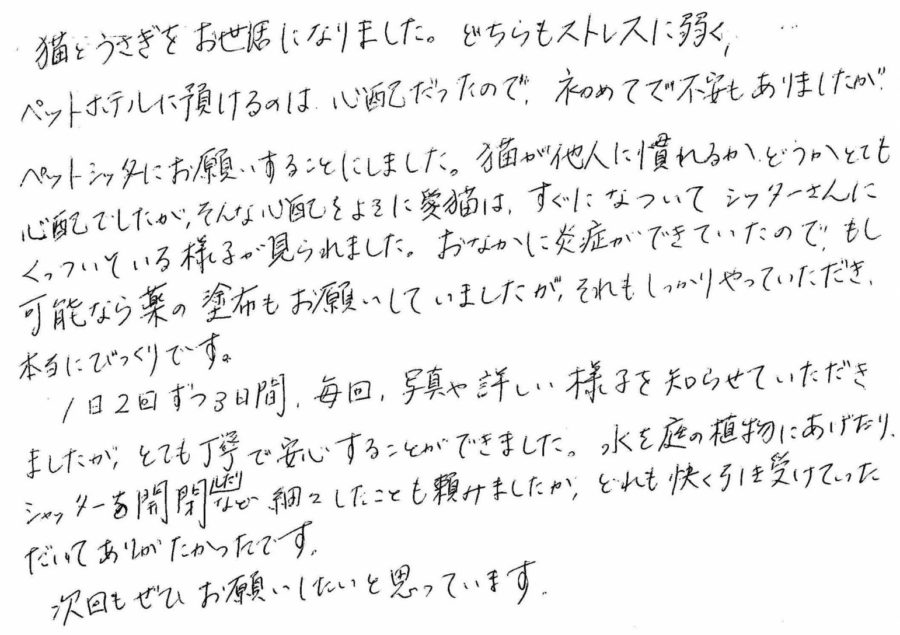 猫とうさぎをお世話になりました。どちらもストレスに弱く、
ペットホテルに預けるのは心配だったので、初めてで不安もありましたが
ペットシッタにお願いすることにしました。猫が他人に慣れるかどうかとても
心配でしたが、そんな心配をよそに愛猫は、すぐになついてシッターさんに
くっついている様子が見られました。おなかに炎症ができていたので、もし
可能なら薬の塗布もお願いしていましたが、それもしっかりやっていただき、
本当にびっくりです。
1日2回ずつ3日間、毎回、写真や詳しい様子を知らせていただき
ましたが、とても丁寧で安心することができました。水を庭の植物にあげたり、
シャッターを開閉したりなど細々したことも頼みましたが、どれも快く引き受けていった
だいてありがたかったです。
次回もぜひお願いしたいと思っています。